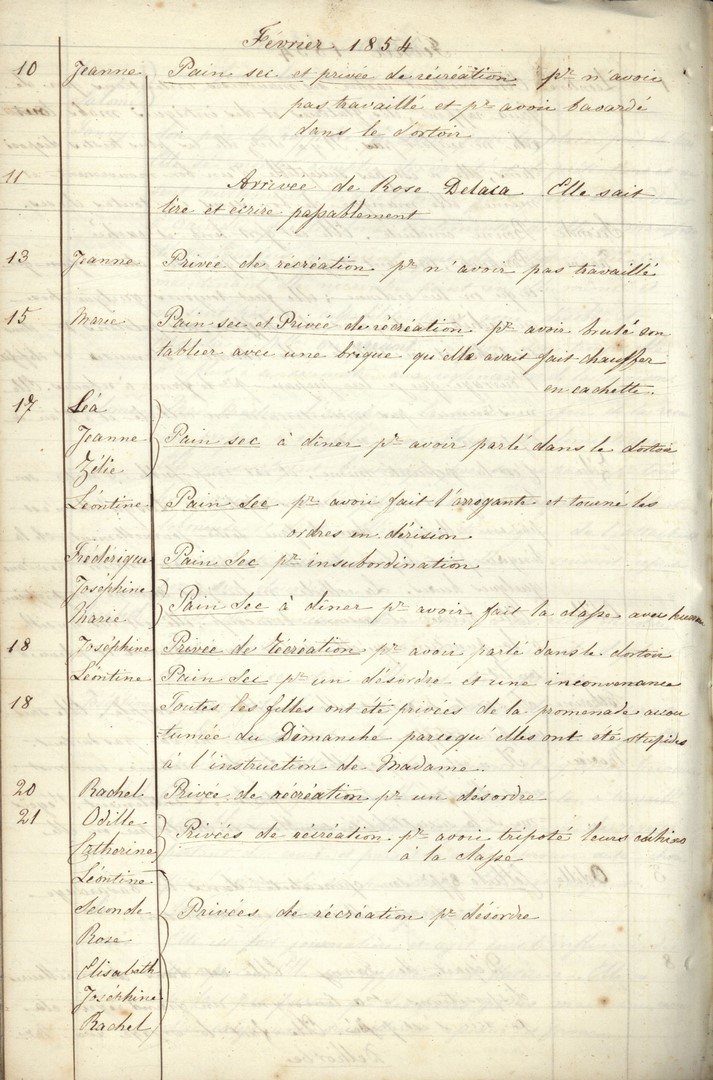 Février 1854
10 Jeanne Pain sec et privée de récréation pr n'avoir
pas travaillé et pr avoir bavardé
dans le dortoir
11 Arrivée de Rose Delaca Elle sait
lire et écrire passablement
13 Jeanne Privée de recréation pr n'avoir pas travaillé
15 Marie Pain sec et Privée de récréation pr avoir brulé son
tablier avec une brique qu'elle avait fait chauffer
en cachette.
17 Léa
Jeanne Pain sec à dîner pr avoir parlé dans le dortoir
Zélie
Léontine Pain sec pr avoir fait l'arrogante et tourné les
ordres en dérision
Frédérique Pain Sec pr insubordination
Joséphine
Marie Pain Sec à dîner pr avoir fait la classe avec humeur
18 Joséphine Privée de récréation pr avoir parlé dans le dortoir
Léontine Pain Sec pr un désordre et une inconvenance
18 Toutes les filles ont été privées de la promenade accou
tumée du Dimanche parcequ'elles ont été stupides
à l'instruction de Madame.
20 Rachel Privée de récréation pr un désordre
21 Odille
Catherine Privées de récréation pr avoir tripoté leurs cahiers
à la classe
Léontine
Seconde Privées de récréation pr désordre
Rose
Elisabeth
Joséphine
Rachel